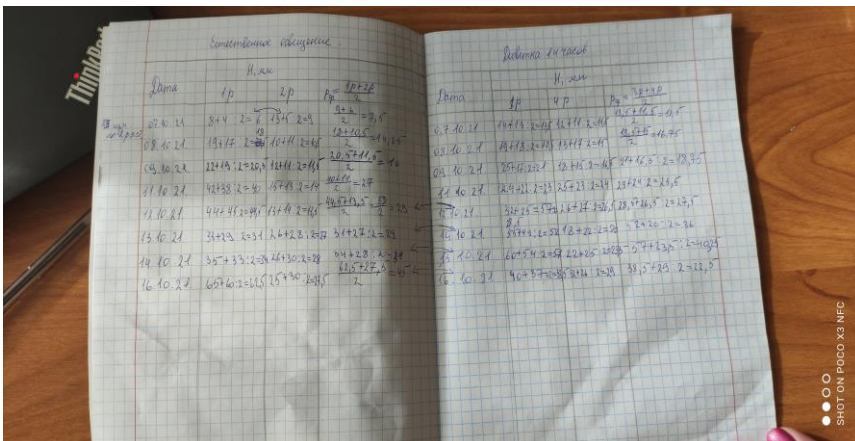 ThinkPad
Естественное освещение.
Дата
H, мм
1р 2р Рф = 1р+2р / 2
07.10.21 8+4:2=6 13+5:2=9 9+6 / 2 = 7,5
08.10.21 19+17:2=18 10+11:2=10,5 18+10,5 / 2 = 14,25
09.10.21 22+19:2=20,5 12+11:2=11,5 20,5+11,5 / 2 = 16
11.10.21 42+38:2=40 15+13:2=14 40+14 / 2 = 27
12.10.21 44+45:2=44,5 13+14:2=13,5 44,5+13,5 / 2 = 58 / 2 = 29
13.10.21 26+28:2=27 31+27:2=29
14.10.21 35+33:2=34 26+30:2=28 34+28:2=31
16.10.21 65+60:2=62,5 25+30:2=27,5 62,5+27,5 / 2 = 45
Досветка 14 часов
Дата
H, мм
3р 4р Рф = 3р+4р / 2
07.10.21 12+11:2=11,5
08.10.21 19+18:2=18,5 13+17:2=15 = 16,75
09.10.21 25+17:2=21 18+15:2=16,5 21+16,5:2=18,75
11.10.21 24+22:2=23 25+23:2=24 23+24:2=23,5
32+25=57:2=28,5 26+27:2=26,5 28,5+26,5:2=27,5
14.10.21 18+22:2=20 52+20:2=36
15.10.21 60+54:2=57 22+25:2=23,5 57+23,5:2=40,25
16.10.21 40+37=38,5 38,5+29:2=22,5
SHOT ON POCO X3 NFC